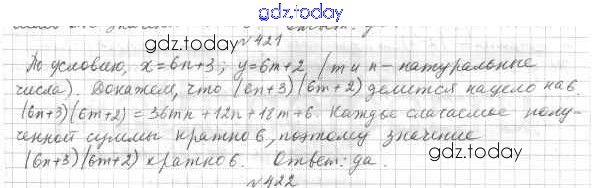 gdz.today
№421
gdz.today
По условию, x=6n+3; y=6m+2, (m и n - натуральные
числа). Докажем, что (6n+3)(6m+2) делится нацело на 6.
(6n+3)(6m+2) = 36mn + 12n + 18m + 6. Каждое слагаемое полу-
ченной суммы кратно 6, поэтому значение
(6n+3)(6m+2) кратно 6. Ответ: да.
gdz.today
gdz.today
№422